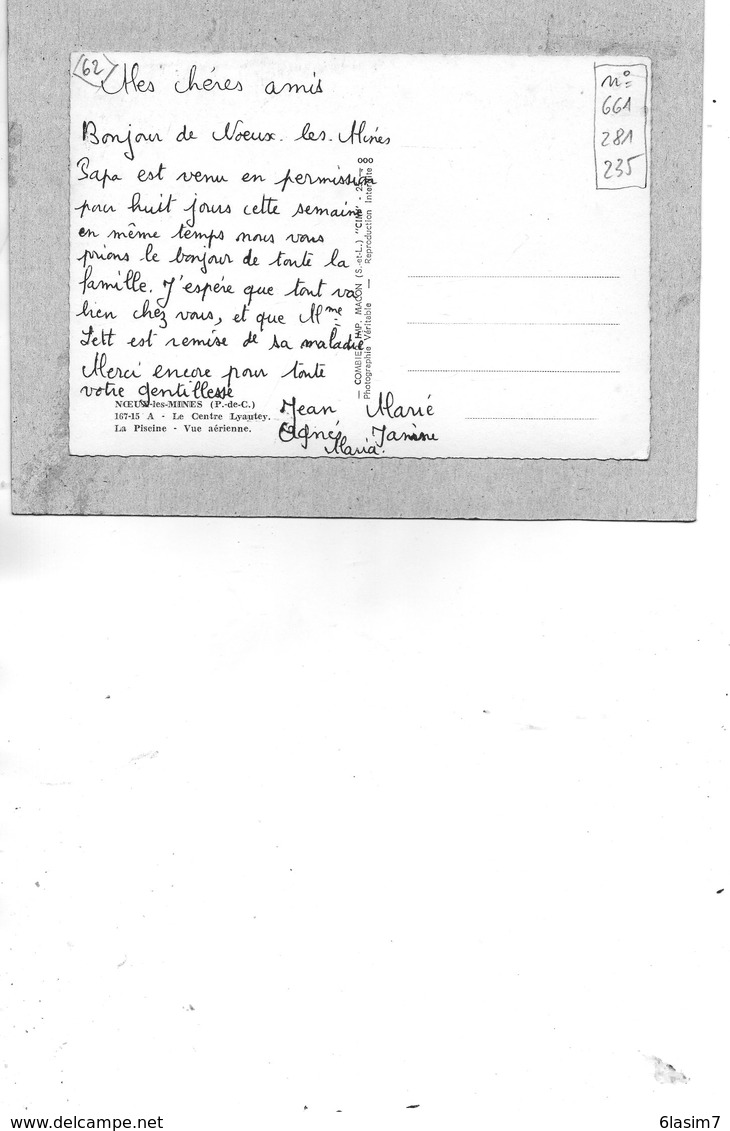 62
Mes chéres amis
n°
661
281
235
Bonjour de Noeux. les. Mines
Papa est venu en permission
pour huit jours cette semaine
en même temps nous vous
prions le bonjour de toute la
famille. J'espére que tout va
bien chez vous, et que Mme
Lett est remise de sa maladie
Merci encore pour toute
votre gentillesse
Jean Marie
Agnés Janine
Maria.
NŒUX-les-MINES (P.-de-C.)
167-15 A - Le Centre Lyautey.
La Piscine - Vue aérienne.
— COMBIER IMP. MACON (S.-et-L.) "CIM"
Photographie Véritable — Reproduction Interdite
delcampe.net
6lasim7